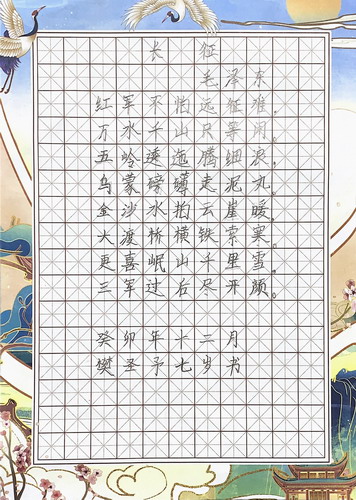 长征
毛泽东
红军不怕远征难，
万水千山只等闲。
五岭逶迤腾细浪，
乌蒙磅礴走泥丸。
金沙水拍云崖暖，
大渡桥横铁索寒。
更喜岷山千里雪，
三军过后尽开颜。
癸卯年十二月
樊圣予七岁书